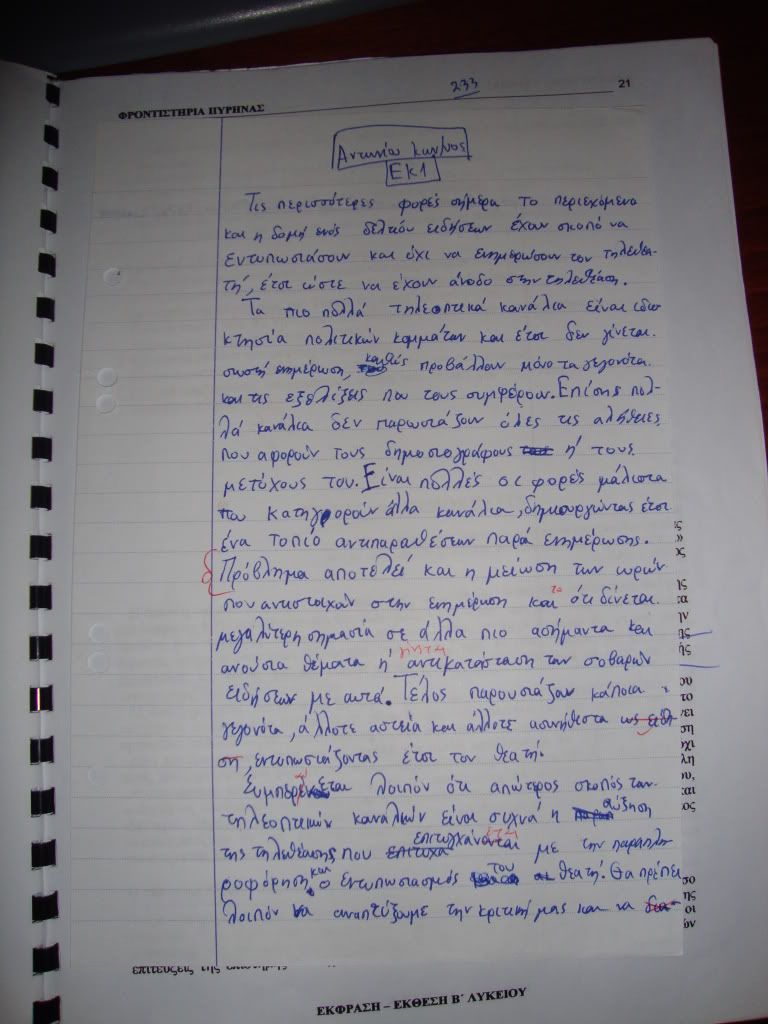 233
21
ΦΡΟΝΤΙΣΤΗΡΙΑ ΠΥΡΗΝΑΣ
Αντωνίου
ΕΚ1
Τις περισσότερες φορές σήμερα το περιεχόμενο
και η δομή ενός δελτίου ειδήσεων έχουν σκοπό να
εντυπωσιάσουν και όχι να ενημερώσουν τον τηλεθεα-
τή, έτσι ώστε να έχουν άνοδο στην τηλεθέαση.
Τα πιο πολλά τηλεοπτικά κανάλια είναι ιδιο
κτησία πολιτικών κομμάτων και έτσι δεν γίνεται
σωστή ενημέρωση, καθώς προβάλλουν μόνο τα γεγονότα
και τις εξελίξεις που τους συμφέρουν. Επίσης πολ-
λά κανάλια δεν παρουσιάζουν όλες τις αλήθειες
που αφορούν τους δημοσιογράφους ή τους
μετόχους του. Είναι πολλές οι φορές μάλιστα
που κατηγορούν άλλα κανάλια, δημιουργώντας έτσι
ένα τοπίο αντιπαραθέσεων παρά ενημέρωσης.
Πρόβλημα αποτελεί και η μείωση των ωρών
που αντιστοιχούν στην ενημέρωση και το ότι δίνεται
μεγαλύτερη σημασία σε άλλα πιο ασήμαντα και
ανούσια θέματα ή γίνεται αντικατάσταση των σοβαρών
ειδήσεων με αυτά. Τέλος παρουσιάζουν κάποια
γεγονότα, άλλοτε αστεία και άλλοτε ασυνήθιστα ως είδη
ση, εντυπωσιάζοντας έτσι τον θεατή.
Συμπεραίνεται λοιπόν ότι απώτερος σκοπός των
τηλεοπτικών καναλιών είναι συχνά η αύξηση
της τηλεθέασης που επιτυγχάνεται με την παραπλη
ροφόρηση και ο εντυπωσιασμός του θεατή. Θα πρέπει
λοιπόν να αναπτύξουμε την κριτική μας και να δια-
ΕΚΦΡΑΣΗ – ΕΚΘΕΣΗ Β΄ ΛΥΚΕΙΟΥ